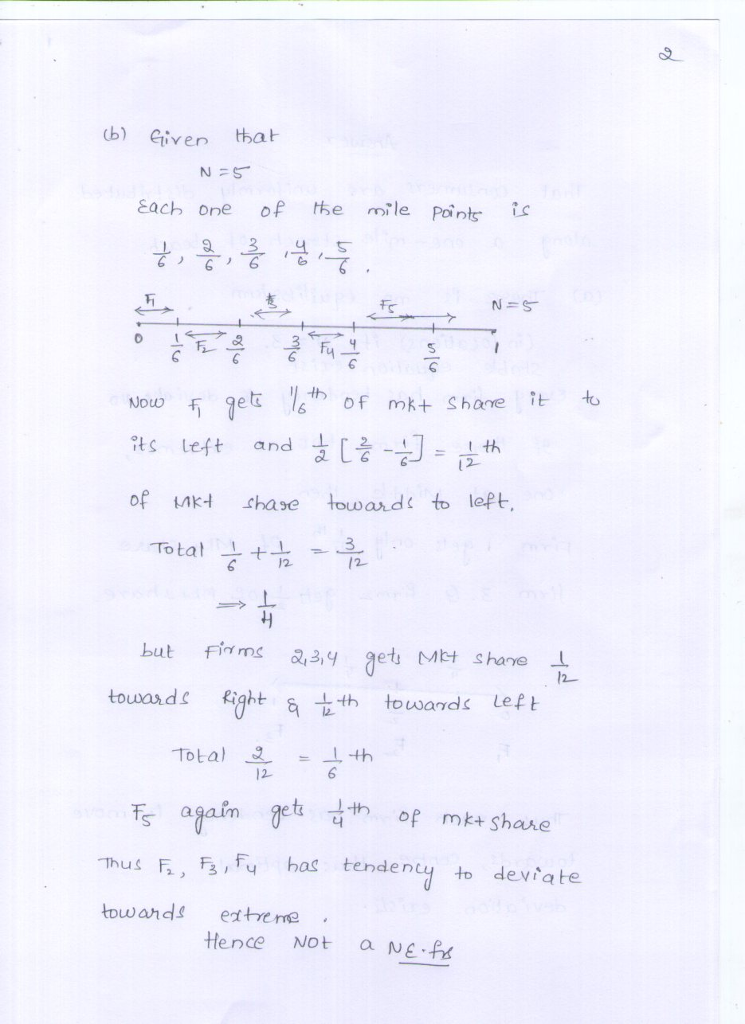 2
(b) Given that
N = 5
Each one of the mile points is
1/6, 2/6, 3/6, 4/6, 5/6.
F1 F5 N = 5
0 1/6 F2 2/6 3/6 F4 4/6 5/6 1
Now F1 gets 1/6th of mkt share it to
its left and 1/2 [2/6 - 1/6] = 1/12 th
of Mkt share towards to left.
Total 1/6 + 1/12 = 3/12
⇒ 1/4
but Firms 2,3,4 gets Mkt share 1/12
towards Right & 1/12 th towards Left
Total 2/12 = 1/6 th
F5 again gets 1/4 th of mkt share
Thus F2, F3, F4 has tendency to deviate
towards extreme.
Hence NOT a NE.